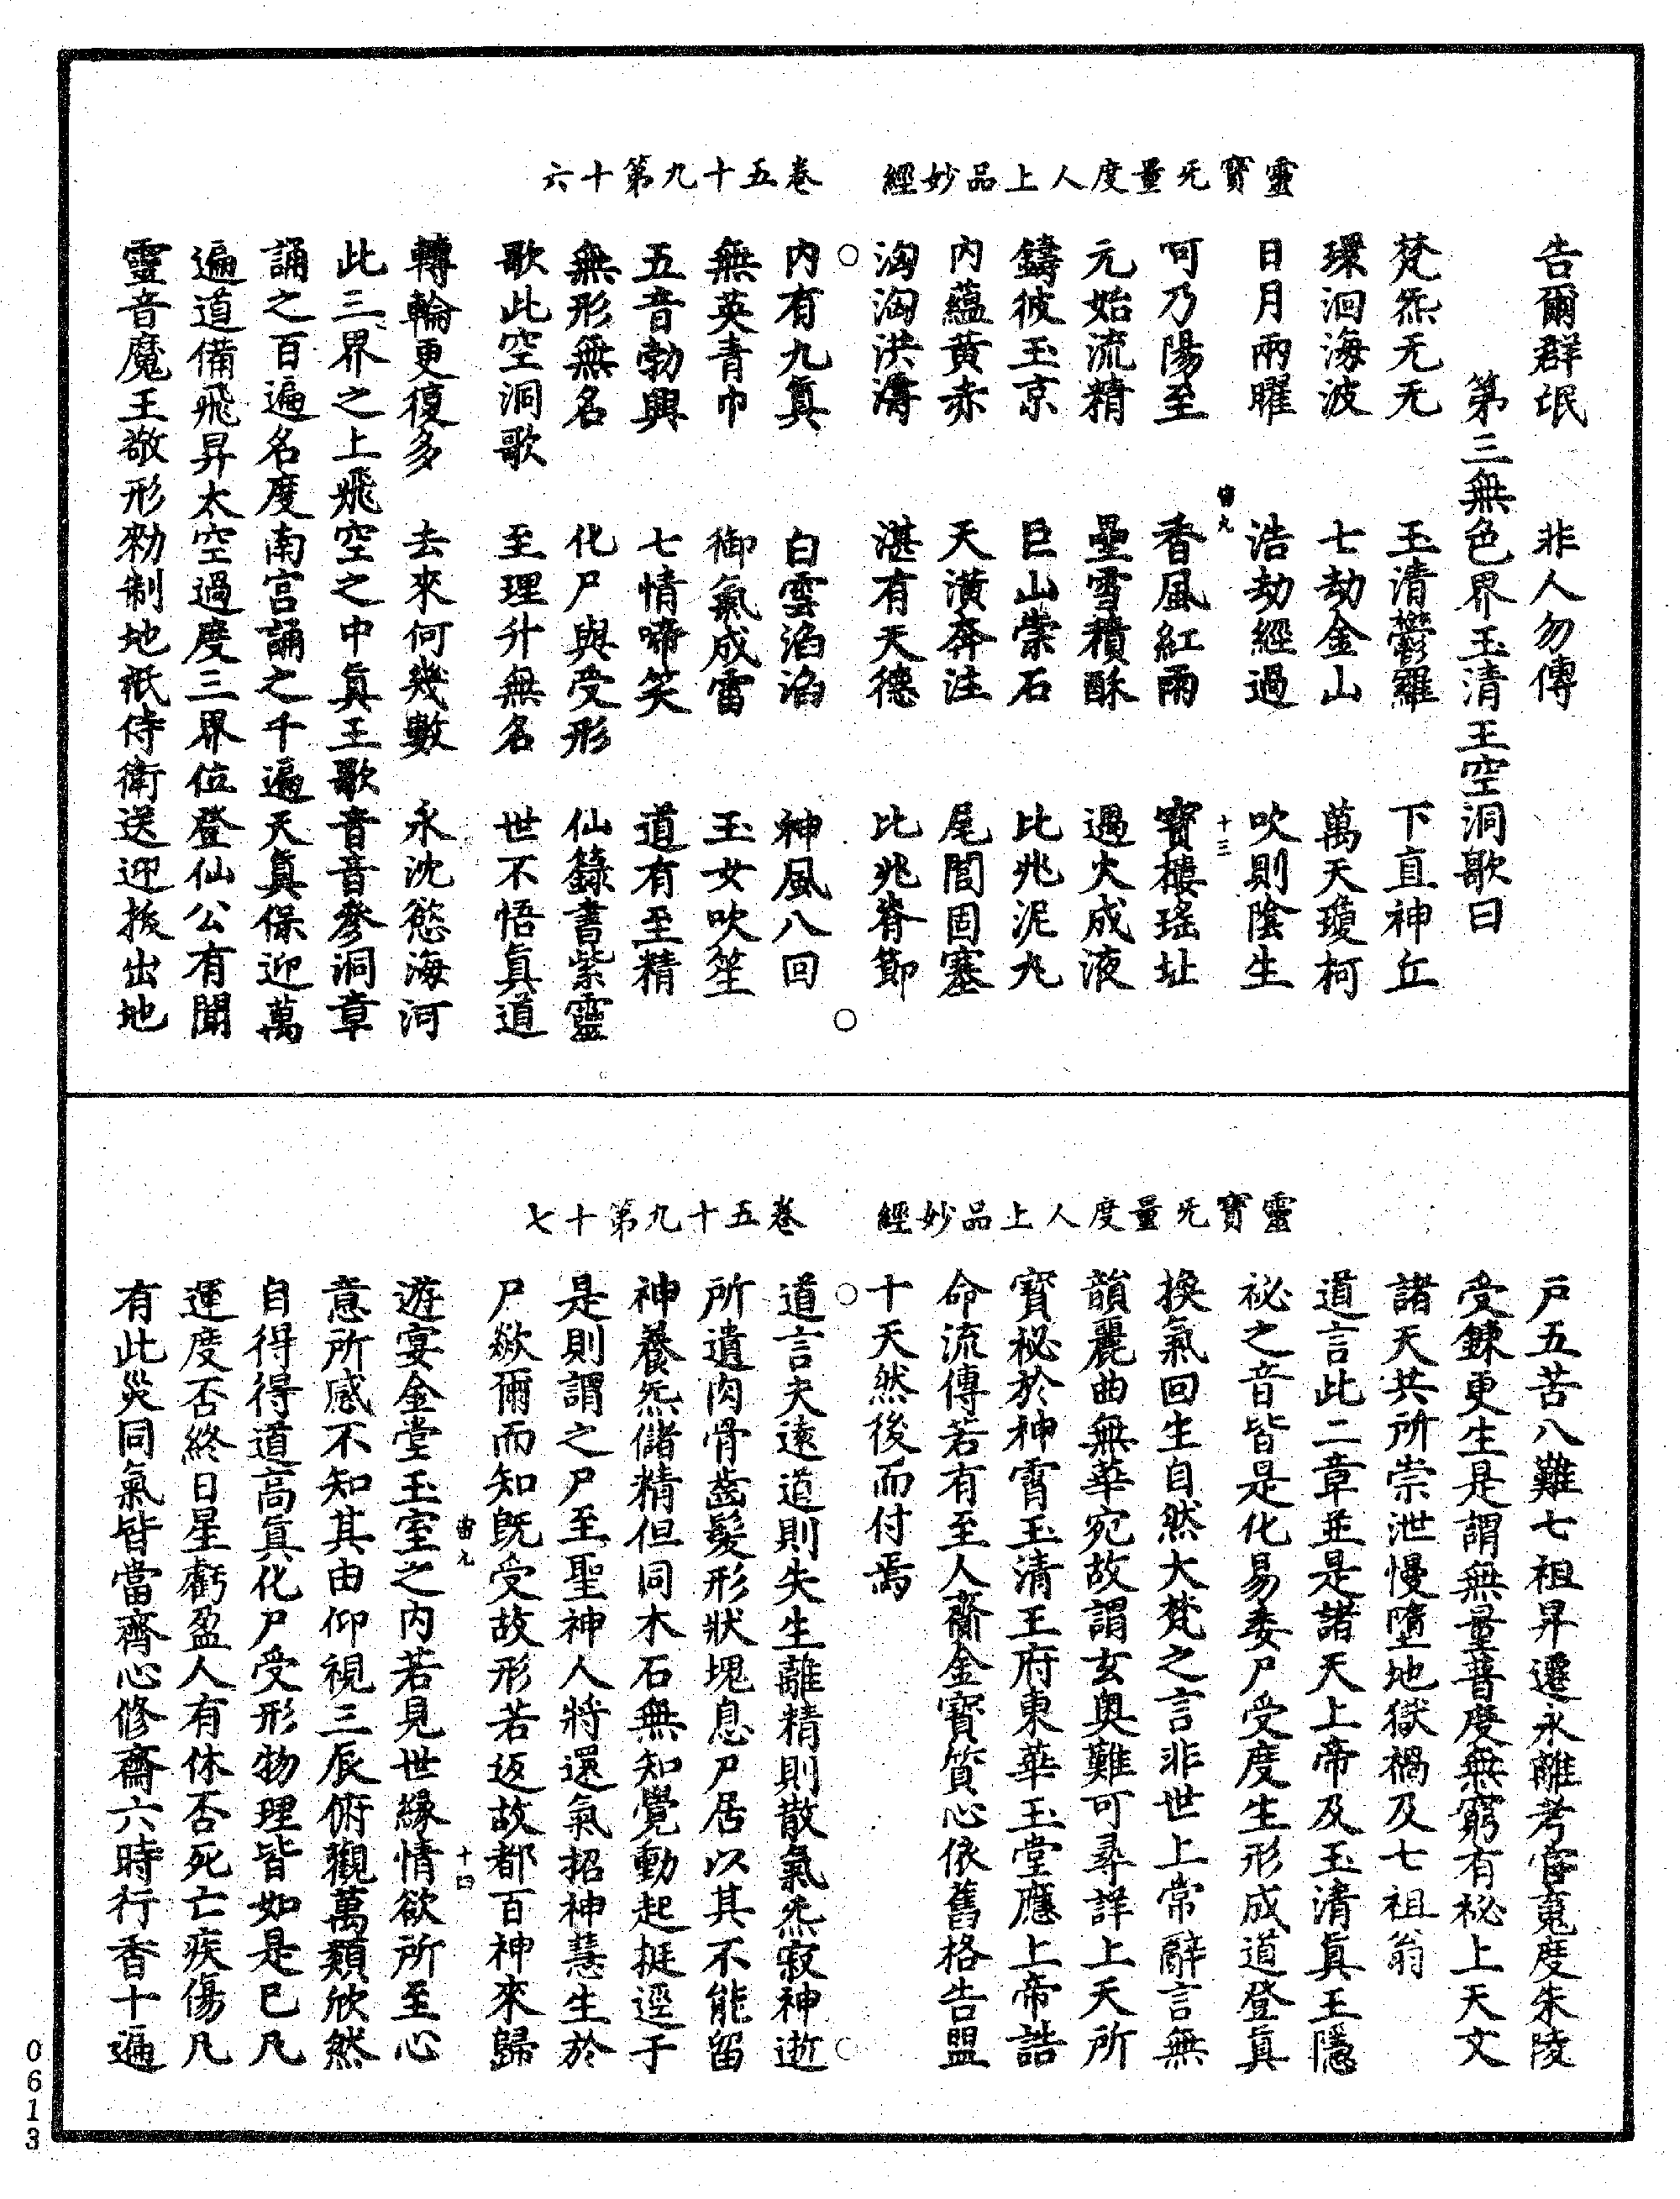 靈寶无量度人上品妙經　卷五十九第十六
告爾群氓　非人勿傳
第三無色界玉清王空洞歌曰
梵炁无无　玉清鬱羅　下直神丘
環洄海波　七劫金山　萬天瓊柯
日月兩曜　浩劫經過　吹則陰生
宙九　十三
呵乃陽至　香風紅雨　寶樓瑤址
元始流精　壘雪積酥　遇火成液
鑄彼玉京　巨山崇石　比兆泥丸
內蘊黃赤　天潢奔注　尾閭固塞
洶洶洪濤　湛有天德　比兆脊節
內有九真　白雲滔滔　神風八回
無英青巾　御氣成雷　玉女吹笙
五音勃興　七情啼笑　道有至精
無形無名　化尸與受形　仙籙書紫靈
歌此空洞歌　至理升無名　世不悟真道
轉輪更復多　去來何幾數　永沈慾海河
此三界之上飛空之中真王歌音音參洞章
誦之百遍名度南宮誦之千遍天真保迎萬
遍道備飛昇太空過度三界位登仙公有聞
靈音魔王敬形勑制地祇侍衛送迎拔出地
靈寶无量度人上品妙經　卷五十九第十七
戶五苦八難七祖昇遷永離考官䰟度朱陵
受鍊更生是謂無量普度無窮有祕上天文
諸天共所崇泄慢墮地獄禍及七祖翁
道言此二章並是諸天上帝及玉清真王隱
祕之音皆是化易委尸受度生形成道登真
換氣回生自然大梵之言非世上常辭言無
韻麗曲無華宛故謂玄奥難可尋詳上天所
寶祕於神霄玉清王府東華玉堂應上帝誥
命流傳若有至人齋金寶質心依舊格告盟
十天然後而付焉
道言夫遠道則失生離精則散氣炁寂神逝
所遺肉骨齒髮形狀塊息尸居以其不能留
神養炁儲精但同木石無知覺動起挺逕于
是則謂之尸至聖神人將還氣招神慧生於
尸歘爾而知旣受故形若返故都百神來歸
宙九　十四
遊宴金堂玉室之內若見世緣情欲所至心
意所感不知其由仰視三辰俯觀萬類欣然
自得得道高真化尸受形物理皆如是已凡
運度否終日星虧盈人有休否死亡疾傷凡
有此災同氣皆當齊心修齋六時行香十遍
0613